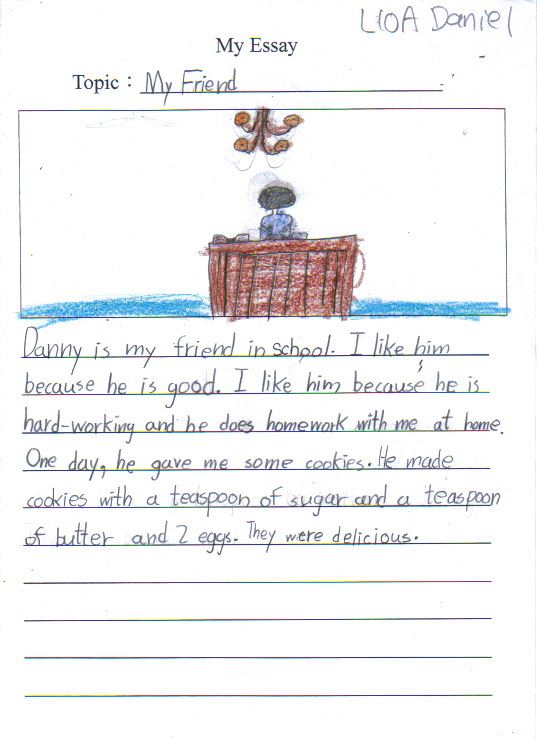 L10A Daniel
My Essay
Topic : My Friend
Danny is my friend in school. I like him
because he is good. I like him because he is
hard-working and he does homework with me at home.
One day, he gave me some cookies. He made
cookies with a teaspoon of sugar and a teaspoon
of butter and 2 eggs. They were delicious.